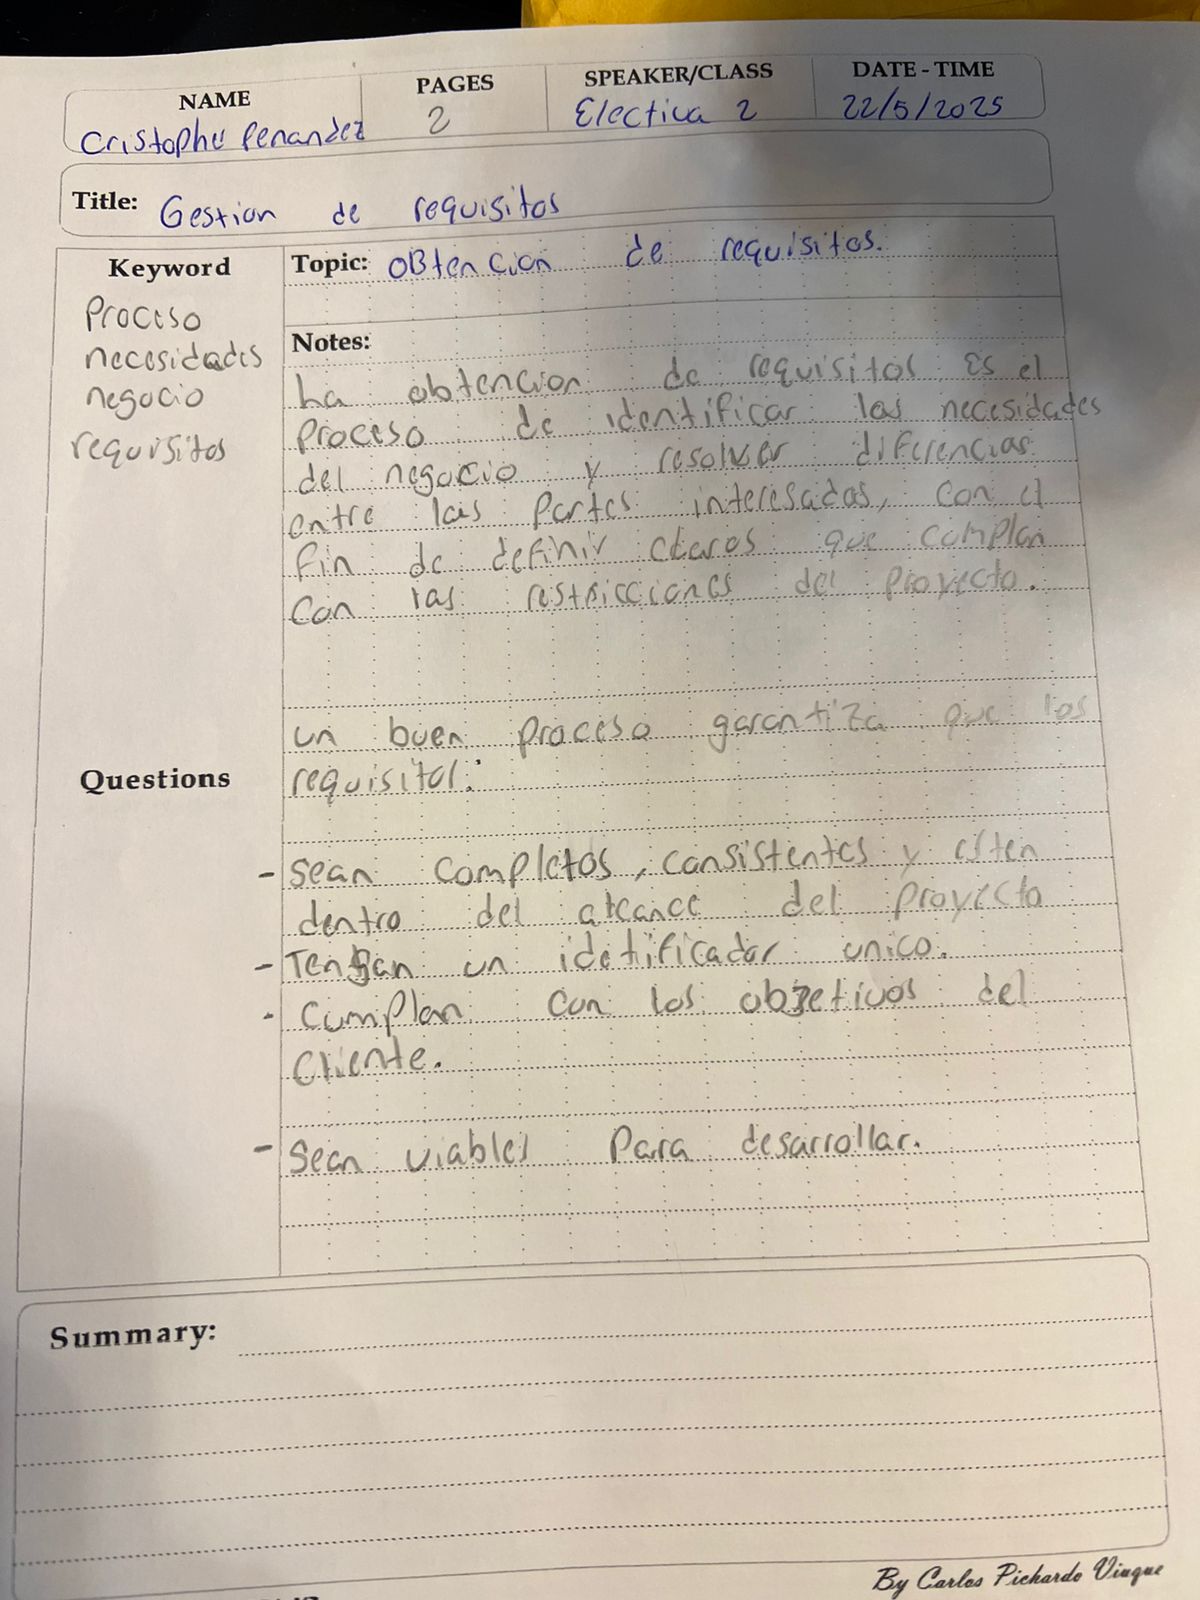 NAME
Cristophe Penandez
PAGES
2
SPEAKER/CLASS
Electiva 2
DATE - TIME
22/5/2025
Title: Gestion de requisitos
Keyword
Proceso
necesidades
negocio
requisitos
Topic: OBtencion de requisitos.
Notes:
La obtencion de requisitos Es el
Proceso de identificar las necesidades
del negocio y resolver diferencias
entre las Partes interesadas, con el
Fin de definir claros que cumplan
Con las restricciones del Proyecto.
un buen proceso garantiza que los
requisitos:
Questions
- Sean Completos, consistentes y esten
dentro del alcance del Proyecto
- Tengan un idetificador unico.
- Cumplan con los objetivos del
Cliente.
- Sean viables Para desarrollar.
Summary:
By Carlos Pichardo Viuque